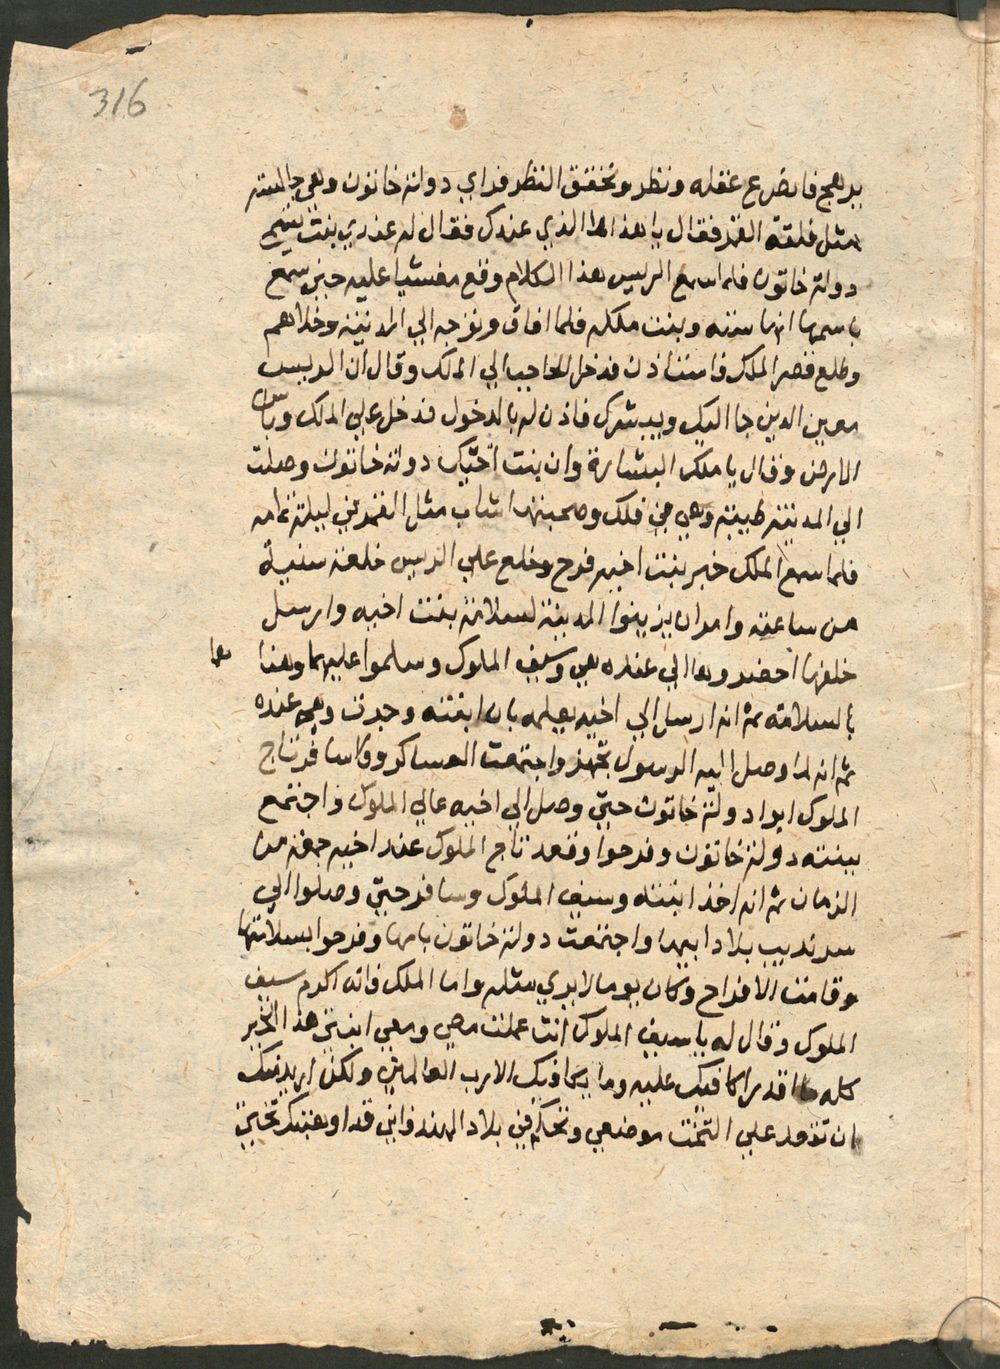 316
يرهج فانصرع عقله ونظر وتحقق النظر فراي دولة خاتون وهي جالسه
مثل فلقة القمر فقال يا هذا اما الذي عندك فقال له عندي بنت تسمي
دولة خاتون فلما سمع الريس هذا الكلام وقع مغشيا عليه حين سمع
باسمها انها سته وبنت ملكه فلما افاق وتوجه الي المدينة وخلاهم
وطلع قصر الملك فاستاذن فدخل الحاجب الي الملك وقال ان الريس
معين الدين جا اليك ويبشرك فاذن له بالدخول فدخل علي الملك وباس
الارض وقال يا ملك البشارة وان بنت اخيك دولة خاتون وصلت
الي المدينة طيبة وهي في فلك وصحبتها شاب مثل القمر في ليلة تمامه
فلما سمع الملك خبر بنت اخيه فرح وخلع علي الريس خلعة سنية
من ساعته وامر ان يزينوا المدينة لسلامة بنت اخيه وارسل
خلفها احضروها الي عنده هي وسيف الملوك وسلموا عليهما وهنا
هما
بالسلامة ثم انه ارسل الي اخيه يعلمه بان ابنته وجدت وهي عنده
ثم انه لما وصل اليه الرسول تجهز واجتمعت العساكر وسافر تاج
الملوك ابو دولة خاتون حتي وصل الي اخيه عالي الملوك واجتمع
ببنته دولة خاتون وفرحوا وقعد تاج الملوك عند اخيه جمعة من
الزمان ثم انه اخذ ابنته وسيف الملوك وسافر حتي وصلوا الي
سرنديب بلاد ابيها واجتمعت دولة خاتون بامها وفرحوا بسلامتها
وقامت الافراح وكان يوما لا يري مثله واما الملك فانه اكرم سيف
الملوك وقال له يا سيف الملوك انت عملت معي ومع ابنتي هذا الخير
كله ما اقدر اكافيك عليه وما يكافيك الا رب العالمين ولكن اريد منك
ان تقعد علي التخت موضعي وتحكم في بلاد الهند فاني قد اوهبتك تختي